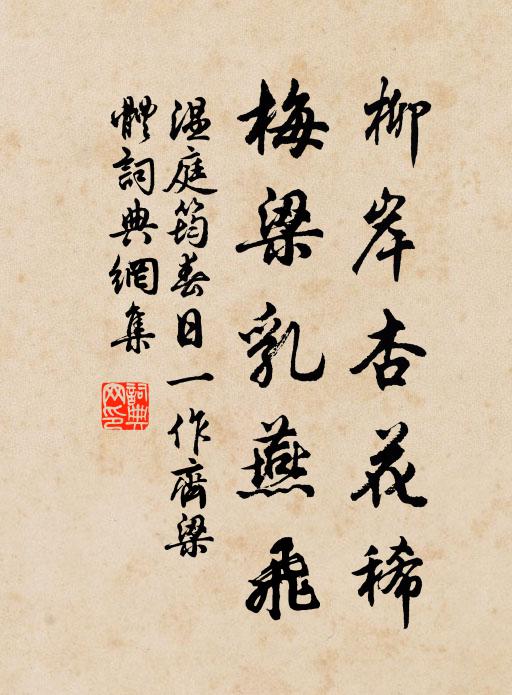 柳岸杏花稀
梅梁乳燕飛
溫庭筠春日一作齊梁
體詞典網集
詞典網印